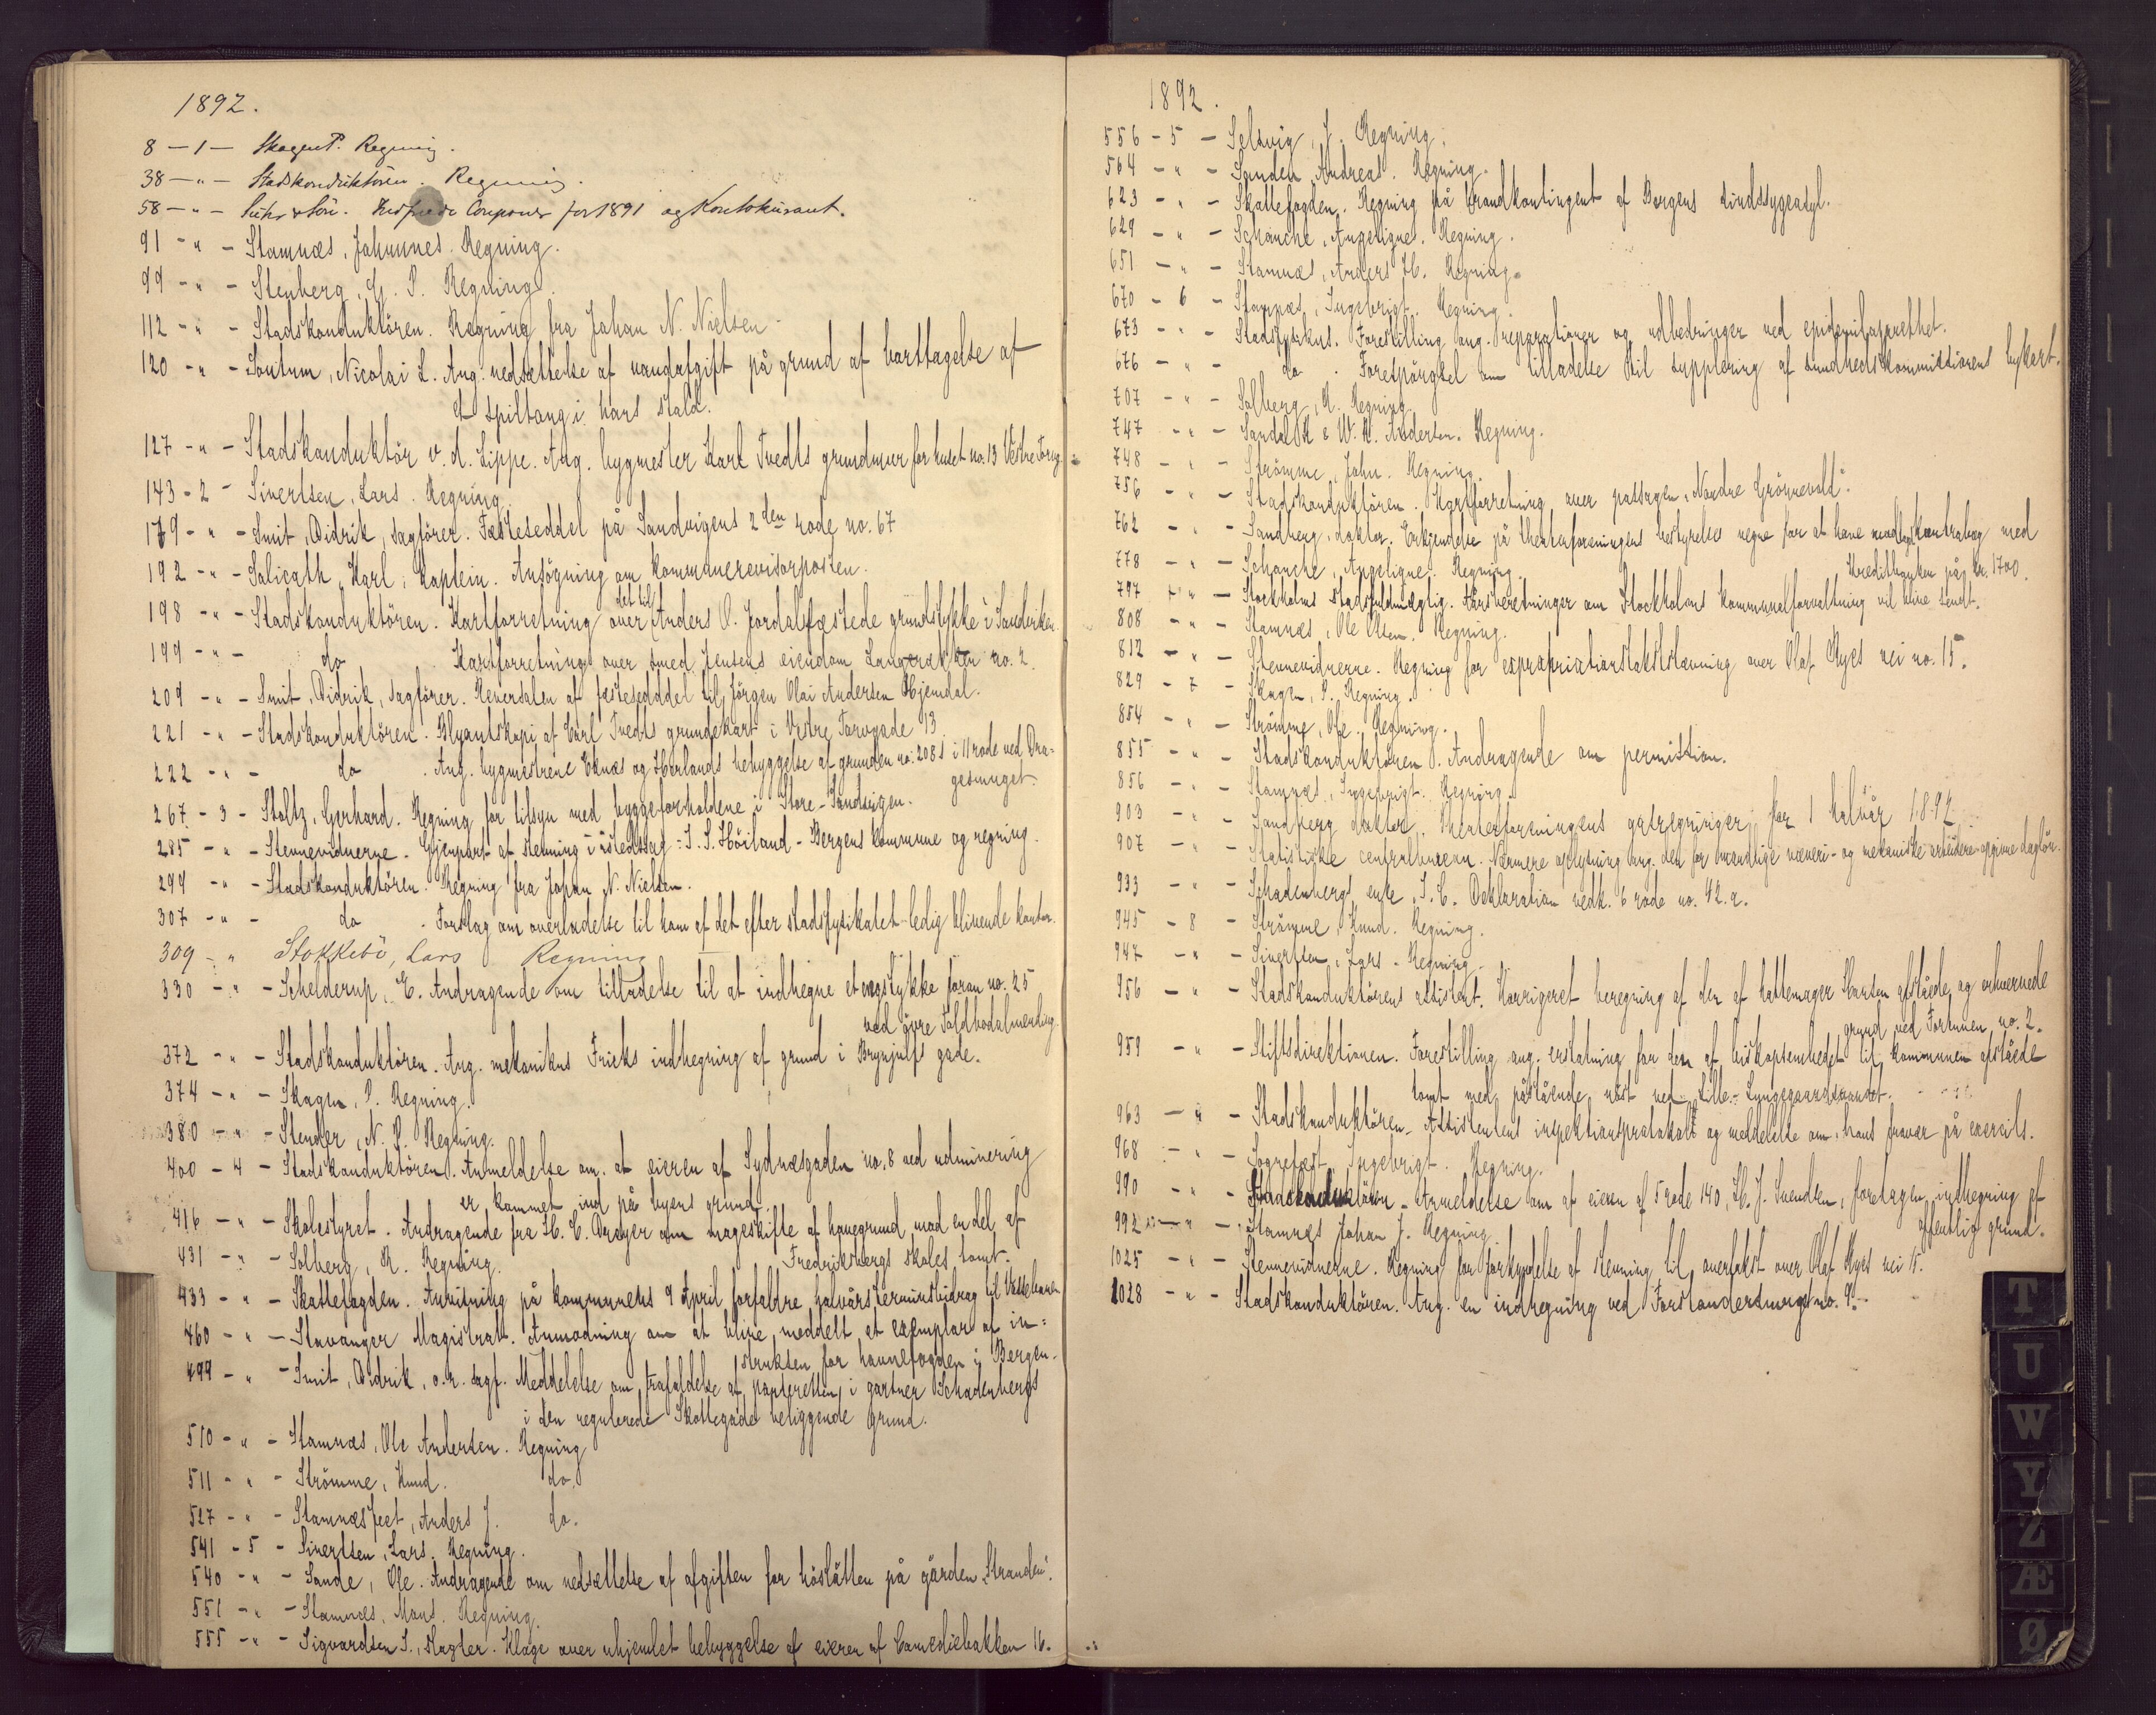 1892.
8 - 1 - Skagen P. Regning.
38 - " - Stadskonduktören. Regning.
58 - " - Suhr & Sön. Coupons for 1891 og Kontokurant.
91 - " - Stamnæs, Johannes. Regning.
99 - " - Stenberg, G. P. Regning.
112 - " - Stadskonduktören. Regning fra Johan N. Nielsen.
120 - " - Sontum, Nicolai L. Ang. nedsættelse af vandafgift på grund af borttagelse af
et spiltoug i hans stald.
127 - " - Stadskonduktör v. d. Lippe. Ang. bygmester Karl Tvedts grundmur for huset no. 13 Vestre Torvg.
143 - 2 - Sivertsen, Lars. Regning.
179 - " - Smit, Didrik, sagförer. Fæsteseddel på Sandvigens 2den rode no. 67
192 - " - Salicath, Karl, kaptein. Ansögning om kommunerevisorposten.
198 - " - Stadskonduktören. Kartforretning over det til Anders O. Jordal fæstede grundstykke i Sandviken.
199 - " - do. Kartforretning over smed Jensens eiendom Langerækken no. 2.
209 - " - Smit, Didrik, sagförer. Reversalen af fæsteseddel til Jörgen Olai Andersen Hjemdal.
221 - " - Stadskonduktören. Blyantskopi af Carl Tvedts grundekart i Vestre Torvgade 13
222 - " - do. Ang. bygmestrene Eknæs og Herlands bebyggelse af grunden no. 208 i 11 rode ved Dra-
gesmuget.
267 - 3 - Stoltz, Gerhard. Regning for tilsyn med byggeforholdene i Store-Sandvigen.
285 - " - Stevnevidnerne. Gjenpart af stevning i åstedssag: J. S. Höiland - Bergens kommune og regning.
294 - " - Stadskonduktören. Regning fra Johan N. Nielsen.
307 - " - do. Forslag om overladelse til ham af det efter stadsfysikatet ledig blivende kontor.
309 - " Stokkebö, Lars Regning
330 - " - Schelderup, E. Andragende om tilladelse til at indhegne et engstykke foran no. 25
ved övre Toldbodalmending.
372 - " - Stadskonduktören. Ang. mekanikus Trieks indhegning af grund i Brynjulfs gade.
374 - " - Skagen, P. Regning.
380 - " - Stender, N. P. Regning.
400 - 4 - Stadskonduktören. Anmeldelse om at eieren af Sydnæsgaden no. 8 ved udminering
er kommet ind på byens grund.
416 - " - Skolestyret. Andragende fra H. C. Dreyer om mageskifte af havegrund mod en del af
Fredriksbergs skoles tomt.
431 - " - Solberg, R. Regning.
433 - " - Skattefogden. Anvisning på kommunens 9 April forfaldne halvårsterminsbidrag til Vossebanen
460 - " - Stavanger Magistrat. Anmodning om at blive meddelt et exemplar af in-
struksen for havnefogden i Bergen.
499 - " - Smit, Didrik, o.r. sagf. Meddelelse om frafaldelse af panteretten i gartner Schadenbergs
i den regulerede Skottegade beliggende grund.
510 - " - Stamnæs, Ole Andersen. Regning
511 - " - Strömme, Knud. do.
527 - " - Stamnæsfeet, Anders J. do.
541 - 5 - Sivertsen, Lars. Regning.
540 - " - Sande, Ole. Andragende om nedsættelse af afgiften for höslåtten på gården „Stranden“.
551 - " - Stamnæs, Mons. Regning.
555 - " - Sigvardsen S., slagter. Klage over uhjemlet bebyggelse af eieren af Comediebakken 16.
1892.
556 - 5 - Selsvig, J. Regning.
564 - " - Sunden, Andreas. Regning.
623 - " - Skattefogden. Regning på brandkontingent af Bergens sindssygeasyl.
629 - " - Schanche, Angelique. Regning.
651 - " - Stamnæs, Anders H. Regning.
670 - 6 - Stamnæs, Ingebrigt. Regning.
673 - " - Stadsfysikus. Forestilling ang. reparationer og udbedringer ved epidemilazarethet.
676 - " - do. Forespörgsel om tilladelse til supplering af sundhedskommissionens bykart.
707 - " - Solberg, R. Regning.
747 - " - Sundal K & W. K. Andersen. Regning.
748 - " - Strömme, John. Regning.
756 - " - Stadskonduktören. Kartforretning over passagen „Nordre Grönnevold“.
762 - " - Sandberg, doktor. Erkjendelse på theaterforeningens bestyrelses vegne for at have modtaget kontrabog med
Kreditbanken på kr. 1700.
778 - " - Schanche, Angelique. Regning.
797 - " - Stockholms stadsfuldmægtig. Årsberetninger om Stockholms kommunalforvaltning vil blive sendt.
808 - " - Stamnæs, Ole Olsen. Regning.
812 - " - Stevnevidnerne. Regning for expropriationstakststævning over Olaf Ryes vei no. 15.
829 - 7 - Skagen, P. Regning.
854 - " - Strömme, Ole. Regning.
855 - " - Stadskonduktören. Andragende om permission.
856 - " - Stamnæs, Ingebrigt. Regning.
903 - " - Sandberg doktor. Theaterforeningens gasregninger for 1 halvår 1892
907 - " - Statistiske centralbureau. Nærmere oplysning ang. den for mandlige væveri- og mekaniske arbeidere opgivne daglön.
933 - " - Schadenbergs enke, J. C. Deklaration vedk. 6 rode no. 42.a.
945 - 8 - Strömme, Knud. Regning.
947 - " - Sivertsen, Lars. Regning.
956 - " - Stadskonduktörens assistent. Korrigeret beregning af den af hattemager Hansen afståede og erhvervede
grund ved Fortunen no. 2.
959 - " - Stiftsdirektionen. Forestilling ang. erstatning for den af bispeembedet til kommunen afståede
tomt med påstående nöst ved Lille-Lungegaardsvandet.
963 - " - Stadskonduktören. Assistentens inspektionsprotokoll og meddelelse om hans fravær på exercits.
968 - " - Sognefest, Ingebrigt. Regning.
990 - " - Stadskonduktören. Anmeldelse om at eieren af 5 rode 140, H. J. Svendsen, foretager indhegning af
offentlig grund.
992 - " - Stamnæs Johan J. Regning.
1025 - " - Stevnevidnerne. Regning for forkyndelse af stevning til overtakst over Olaf Ryes vei 15.
1028 - " - Stadskonduktören. Ang. en indregning ved Forstandersmuget no. 9.
T
U
W
Y
Z
Æ
Ø